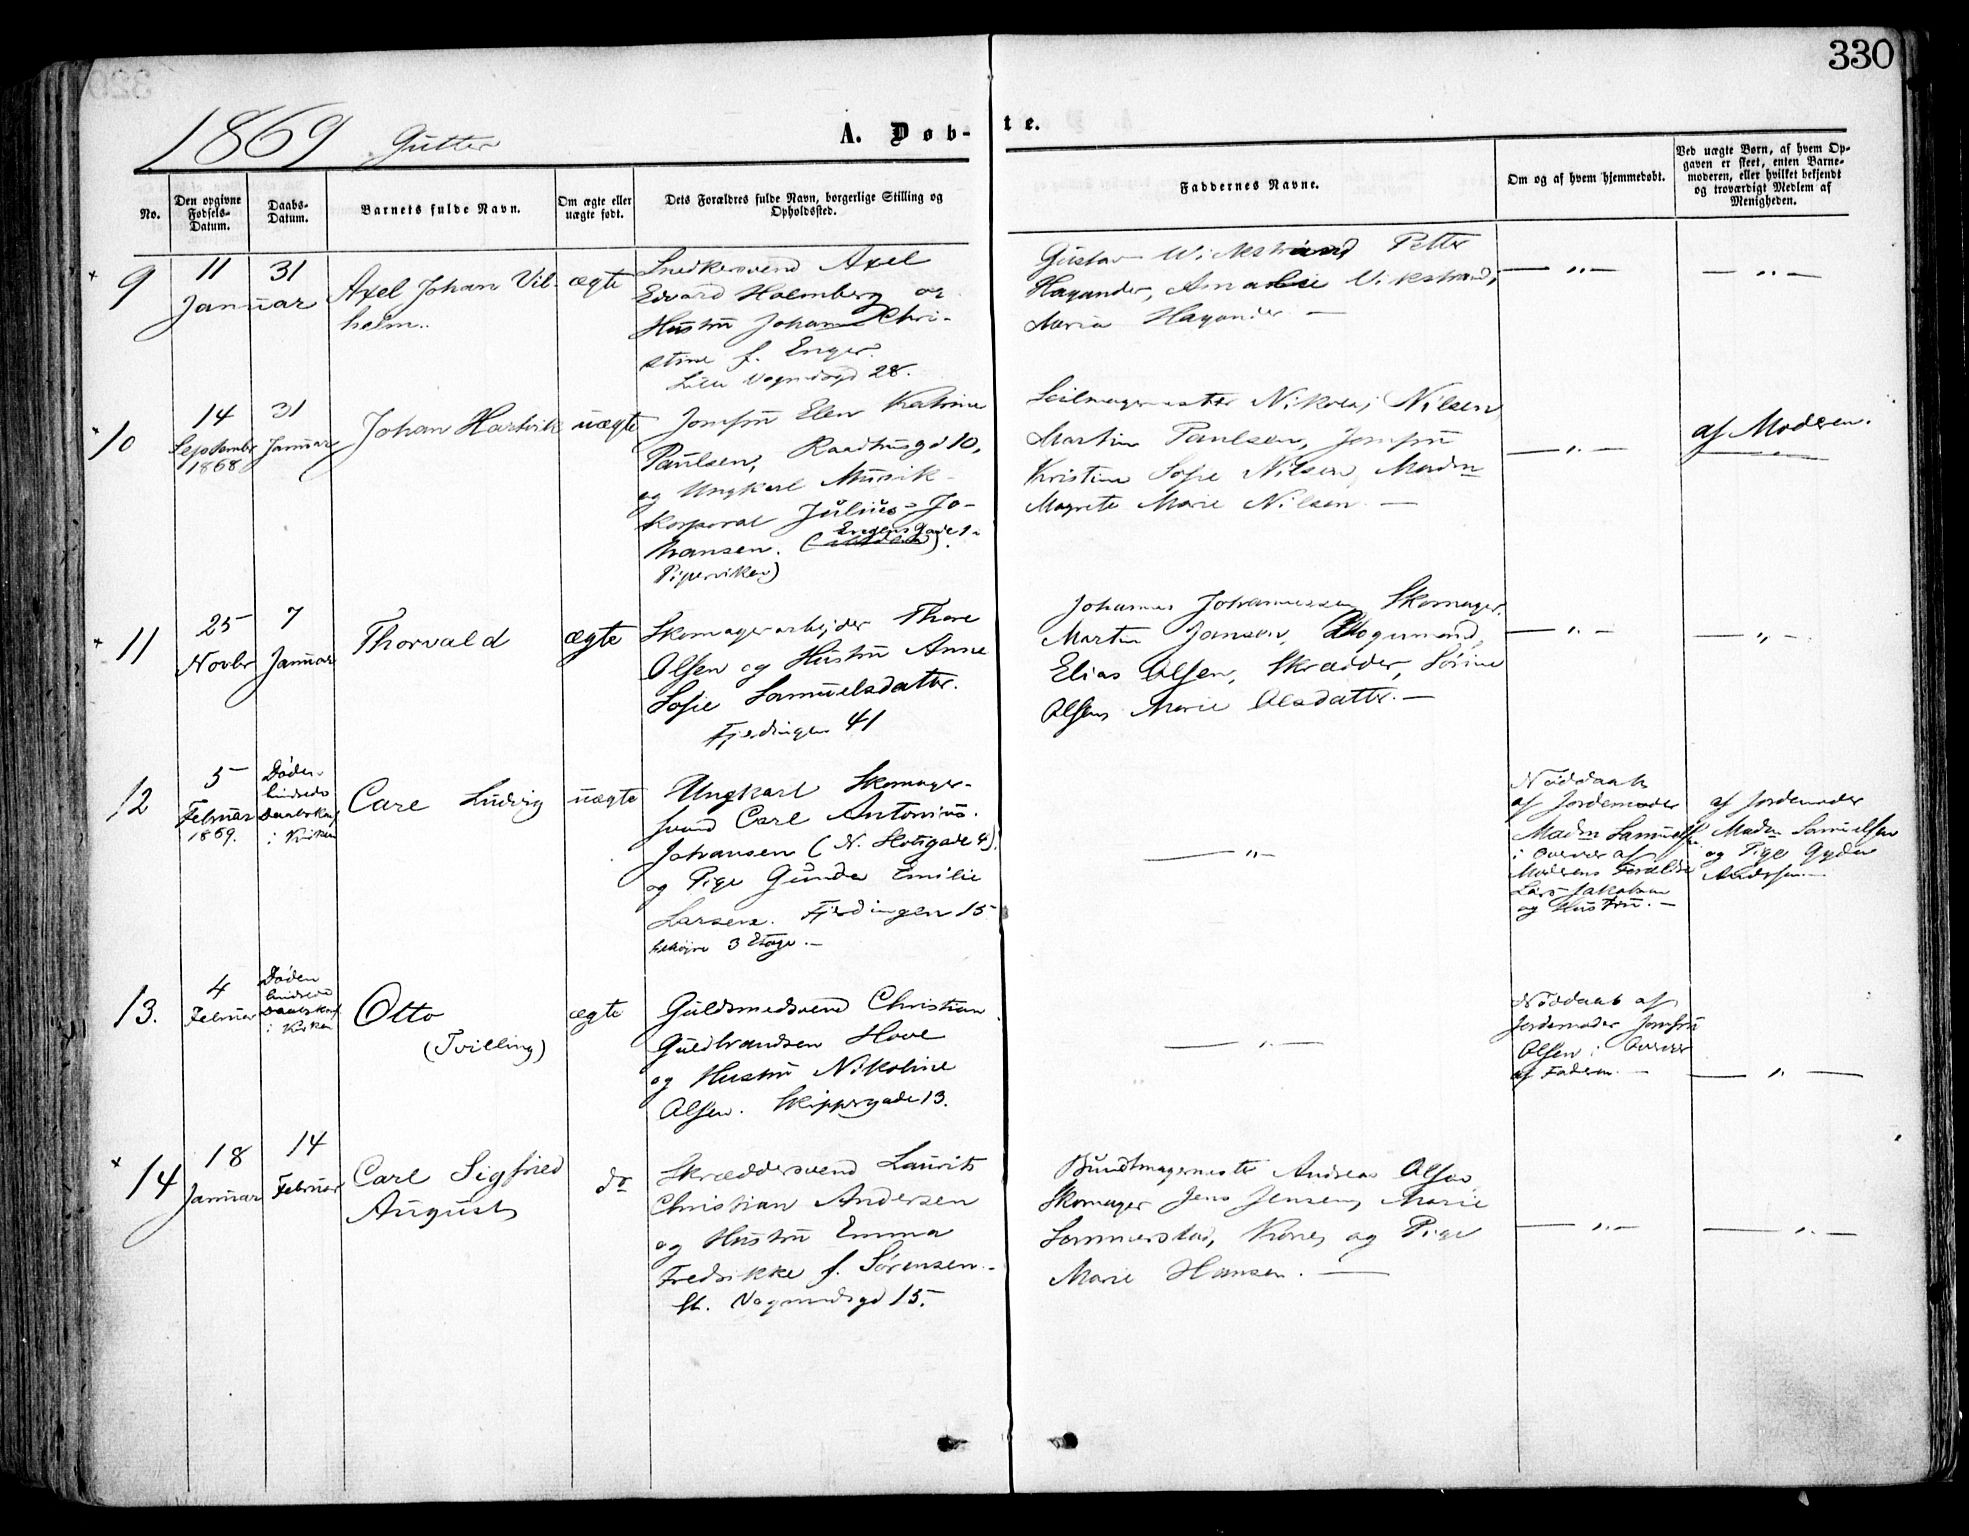 330
1869 Gutter
A. Døb-
te.
No.
Den opgivne Fødsels-Datum.
Daabs-Datum.
Barnets fulde Navn.
Om ægte eller uægte født.
Dets Forældres fulde Navn, borgerlige Stilling og Opholdssted.
Faddernes Navne.
Om og af hvem hjemmedøbt.
Ved uægte Børn, af hvem Opgaven er skeet, enten Barnemoderen, eller hvilket bekjendt og troværdigt Medlem af Menigheden.
9
11
Januar
31
Axel Johan Vil-
helm.
ægte
Snedkersvend Axel
Edvard Holmberg og
Hustru Johanne Chri-
stine f. Enger.
Lille Vognmdsgd 28.
Gustav Wickstrand Petter
Hagander, Amalie Vikstrand,
Maria Hagander —
— „ —
— „ —
10
14
September
1868
31
Januar
Johan Hartvik
uægte
Jomfru Elen Katrine
Paulsen, Raadhusgd 10,
og Ungkarl Musik-
korporal Julius Jo-
hansen. Engens Gade 1
Piperviken)
Seilmagermester Nikolai Nilsen,
Martin Paulsen, Jomfru
Kristine Sofie Nilsen, Madm
Magrete Marie Nilsen. —
— „ —
af Moderen.
11
25
Novbr
7
Januar
Thorvald
ægte
Skomagerarbeider Thore
Olsen og Hustru Anne
Sofie Samuelsdatter.
Fjerdingen 41
Johannes Johannessen Skomager.
Martin Jansen, Vognmand,
Elias Olsen, Skrædder, Sørine
Olsen, Marie Olsdatter. —
— „ —
— „ —
12
5
Februar
1869.
Døden
indseds
Daabskast
i Kirken
Carl Ludvig
uægte
Ungkarl Skomager-
svend Carl Antonius
Johansen (N. Slotsgade 4)
og Pige Gunda Emilie
Larsen. Fjerdingen 15
3 Etage. —
— „ —
Nøddaab
af Jordemoder
Madm Samuelsen
i Overvær af
Moderens Forældre
Lars Jakobsen
og Hustru. —
af Jordemoder
Madm Samuelsen
og Pige Gyda
Andersen. —
13.
4
Februar
Døden
i Kirken
Otto
(Tvilling)
ægte
Guldsmedsvend Christian
Guldbrandsen Hove
og Hustru Nikoline
Olsen. Skippergade 13.
— „ —
Nøddaab af
Jordemoder Jomfru
Olsen i Overvær
af Faderen. —
— „ —
14
18
Januar
14
Februar
Carl Sigfried
August
do
Skræddersvend Laurits
Christian Andersen
og Hustru Emma
Fredrikke f. Sørensen. —
St. Vognmdsgd 15.
Buntmagermester Andreas Olsen
Skomager Jens Jensen, Marie
Sommerstad, Kone, og Pige
Marie Hansen. —
— „ —
— „ —